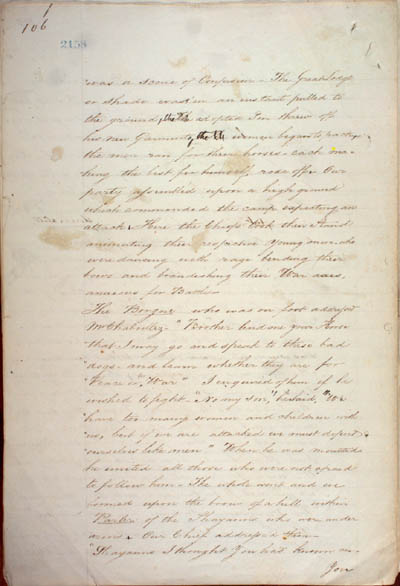 1
106
2158
was a scene of Confusion - The Great Lodge
or Shade was in an instant pulled to
the ground, the adopted Son shares off
his new Garments, the women began to
the men ran for their horses - each ma-
king the best for himself, rode off. Our
party assembled upon a high ground
which commanded the camp expecting an
attack. Here the Chiefs took their stand
animating their respective Young men who
were dancing with rage bending their
bows and brandishing their War axes,
anxious for Battle.
The Borgne who was on foot addressed
Mr Chaboulez. "Brother lend me your Horse
that I may go and speak to these bad
"dogs - and learn whether they are for
"Peace or "War" I enquired of him if he
wished to fight. "No my son," he said, "We
have too many women and children with
"us, but if we are attacked we must defend
"ourselves like men" When he was mounted
he invited all those who were not afraid
to follow him - The whole went and we
formed upon the brow of a hill within
of the Shayanns who were under
arms. Our Chief addressed them -
"Shayanns I thought You had known me
You